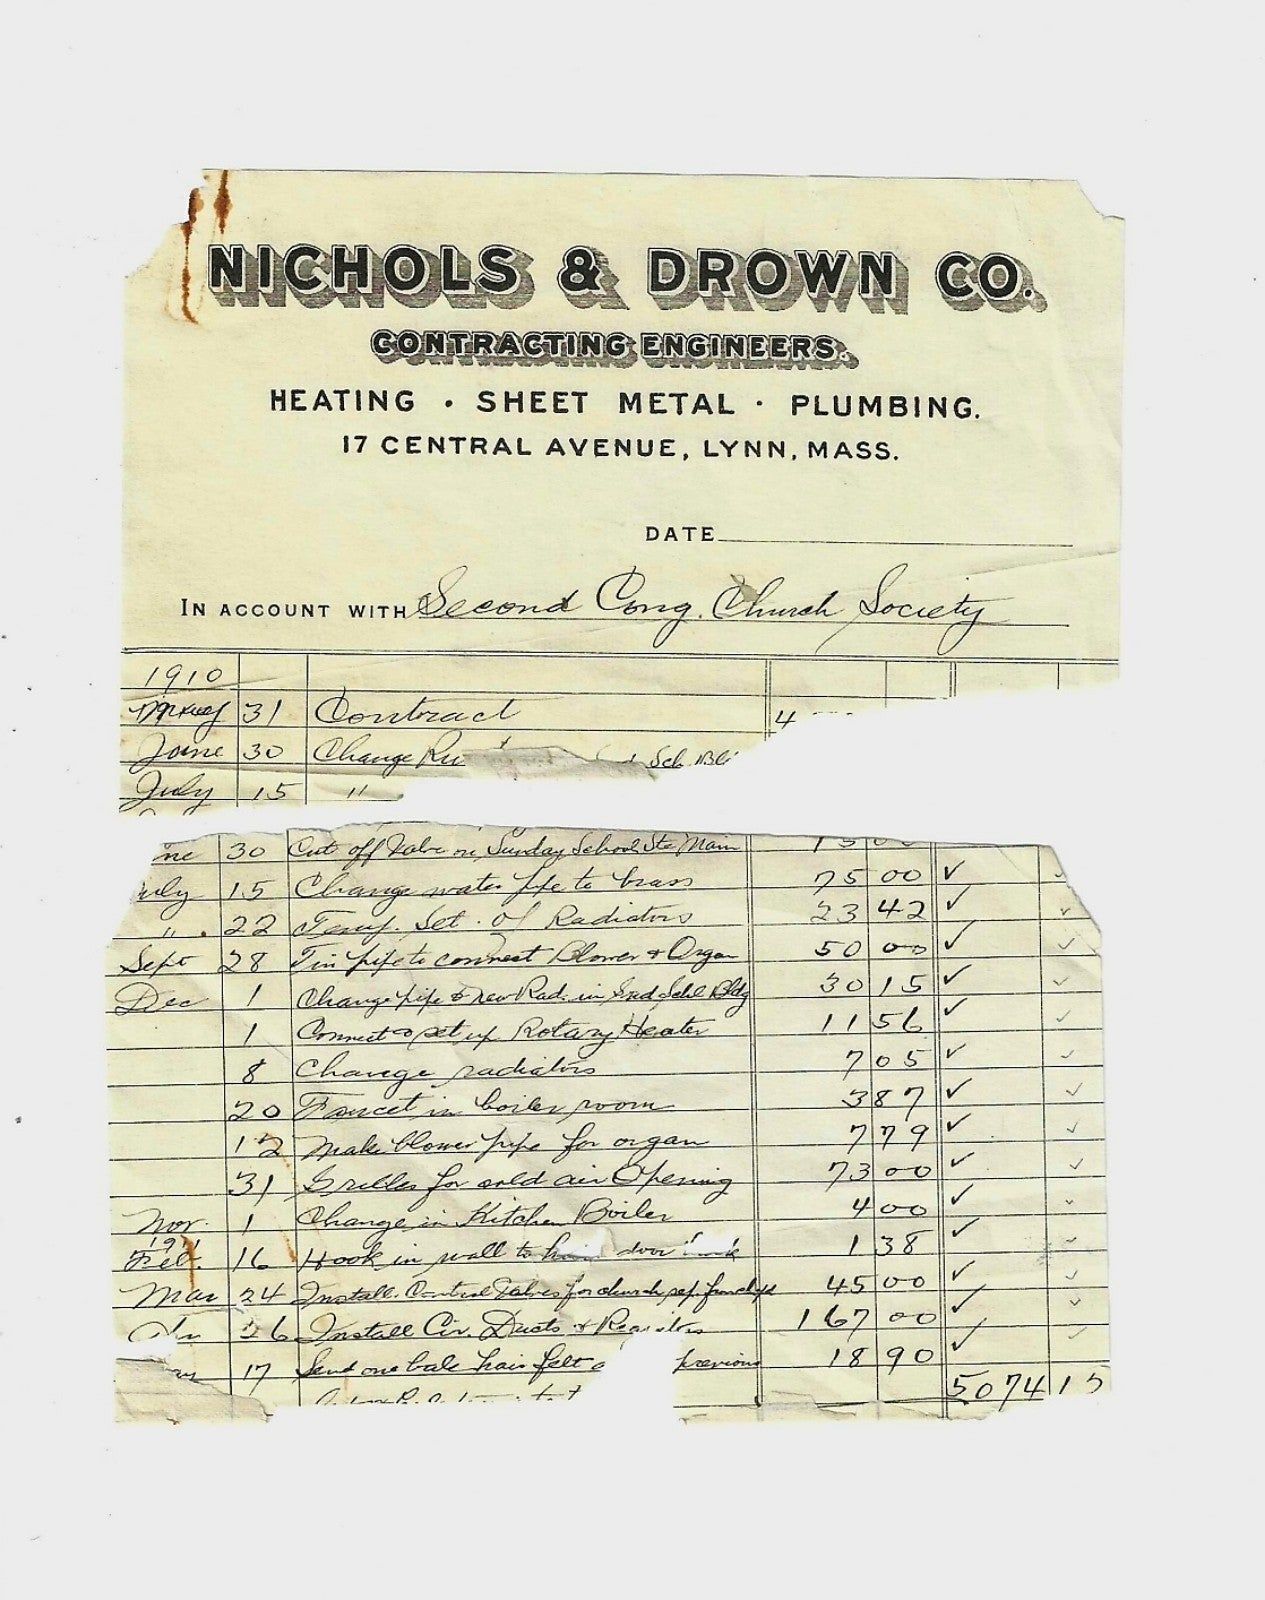 NICHOLS & DROWN CO.
CONTRACTING ENGINEERS.
HEATING · SHEET METAL · PLUMBING.
17 CENTRAL AVENUE, LYNN, MASS.
DATE
IN ACCOUNT WITH Second Cong. Church Society
1910
31 Contract 4
June 30 Change Sch
July 15 "
30 Cut off Valve on Sunday School Main
15 Change water pipe to brass 75 00 ✓ ✓
" 22 Temp. Set. of Radiators 23 42 ✓ ✓
Sept 28 Tin pipe to connect Blower & Organ 50 00 ✓ ✓
Dec 1 Change pipe & new Rad. in Bldg 30 15 ✓ ✓
1 Connect & set up Rotary Heater 11 56 ✓ ✓
8 Change radiators 7 05 ✓ ✓
20 Faucet in boiler room 3 87 ✓ ✓
12 Make blower pipe for organ 7 79 ✓ ✓
31 Grilles for cold air Opening 73 00 ✓ ✓
Nov. 1 Change in Kitchen Boiler 4 00 ✓ ✓
1911
Feb. 16 Hook in wall to door 1 38 ✓
Mar 24 Install. Control Valves for church 45 00 ✓ ✓
26 Install Cir. Ducts & 167 00 ✓ ✓
17 Send one bale hair felt previous 18 90 ✓ ✓
5074 15